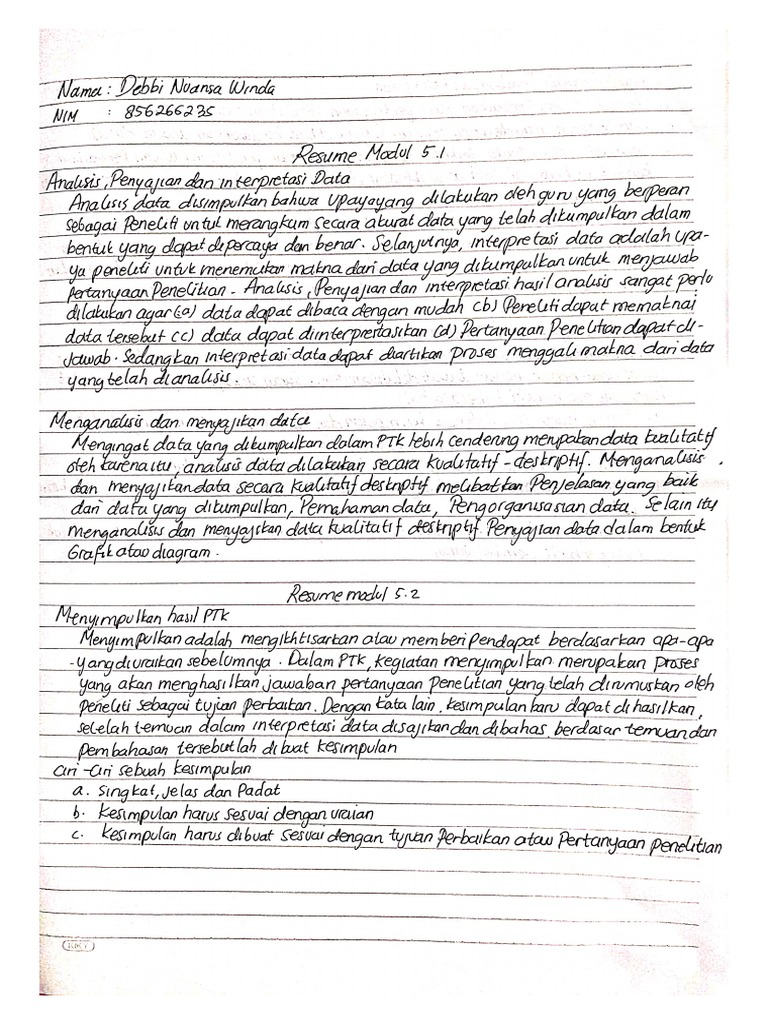 Nama : Debbi Nuansa Winda
NIM : 856266235
Resume Modul 5.1
Analisis, Penyajian dan interpretasi Data
Analisis data disimpulkan bahwa upaya yang dilakukan oleh guru yang berperan
sebagai Peneliti untuk merangkum secara akurat data yang telah dikumpulkan dalam
bentuk yang dapat dipercaya dan benar. Selanjutnya, interpretasi data adalah upa-
ya peneliti untuk menemukan makna dari data yang dikumpulkan untuk menjawab
Pertanyaan Penelitian - Analisis, Penyajian dan interpretasi hasil analisis sangat perlu
dilakukan agar (a) data dapat dibaca dengan mudah (b) Peneliti dapat memaknai
data tersebut (c) data dapat diinterprestasikan (d) Pertanyaan Penelitian dapat di-
jawab. Sedangkan interpretasi data dapat diartikan proses menggali makna dari data
yang telah dianalisis.
Menganalisis dan menyajikan data
Mengingat data yang dikumpulkan dalam PTK lebih cenderung merupakan data kualitatif
oleh karena itu, analisis data dilakukan secara kualitatif-deskriptif. Menganalisis
dan menyajikan data secara kualitatif deskriptif melibatkan Penjelasan yang baik
dari data yang dikumpulkan, Pemahaman data, Pengorganisasian data. Selain itu
menganalisis dan menyajikan data kualitatif deskriptif Penyajian data dalam bentuk
Grafik atau diagram.
Resume modul 5.2
Menyimpulkan hasil PTK
Menyimpulkan adalah mengikhtisarkan atau memberi pendapat berdasarkan apa-apa
yang diuraikan sebelumnya. Dalam PTK, kegiatan menyimpulkan merupakan proses
yang akan menghasilkan jawaban pertanyaan penelitian yang telah dirumuskan oleh
peneliti sebagai tujuan perbaikan. Dengan kata lain, kesimpulan baru dapat dihasilkan,
setelah temuan dalam interpretasi data disajikan dan dibahas, berdasar temuan dan
pembahasan tersebutlah dibuat kesimpulan
Ciri-Ciri sebuah kesimpulan
a. singkat, jelas dan Padat
b. kesimpulan harus sesuai dengan uraian
c. kesimpulan harus dibuat sesuai dengan tujuan Perbaikan atau Pertanyaan penelitian
KKY